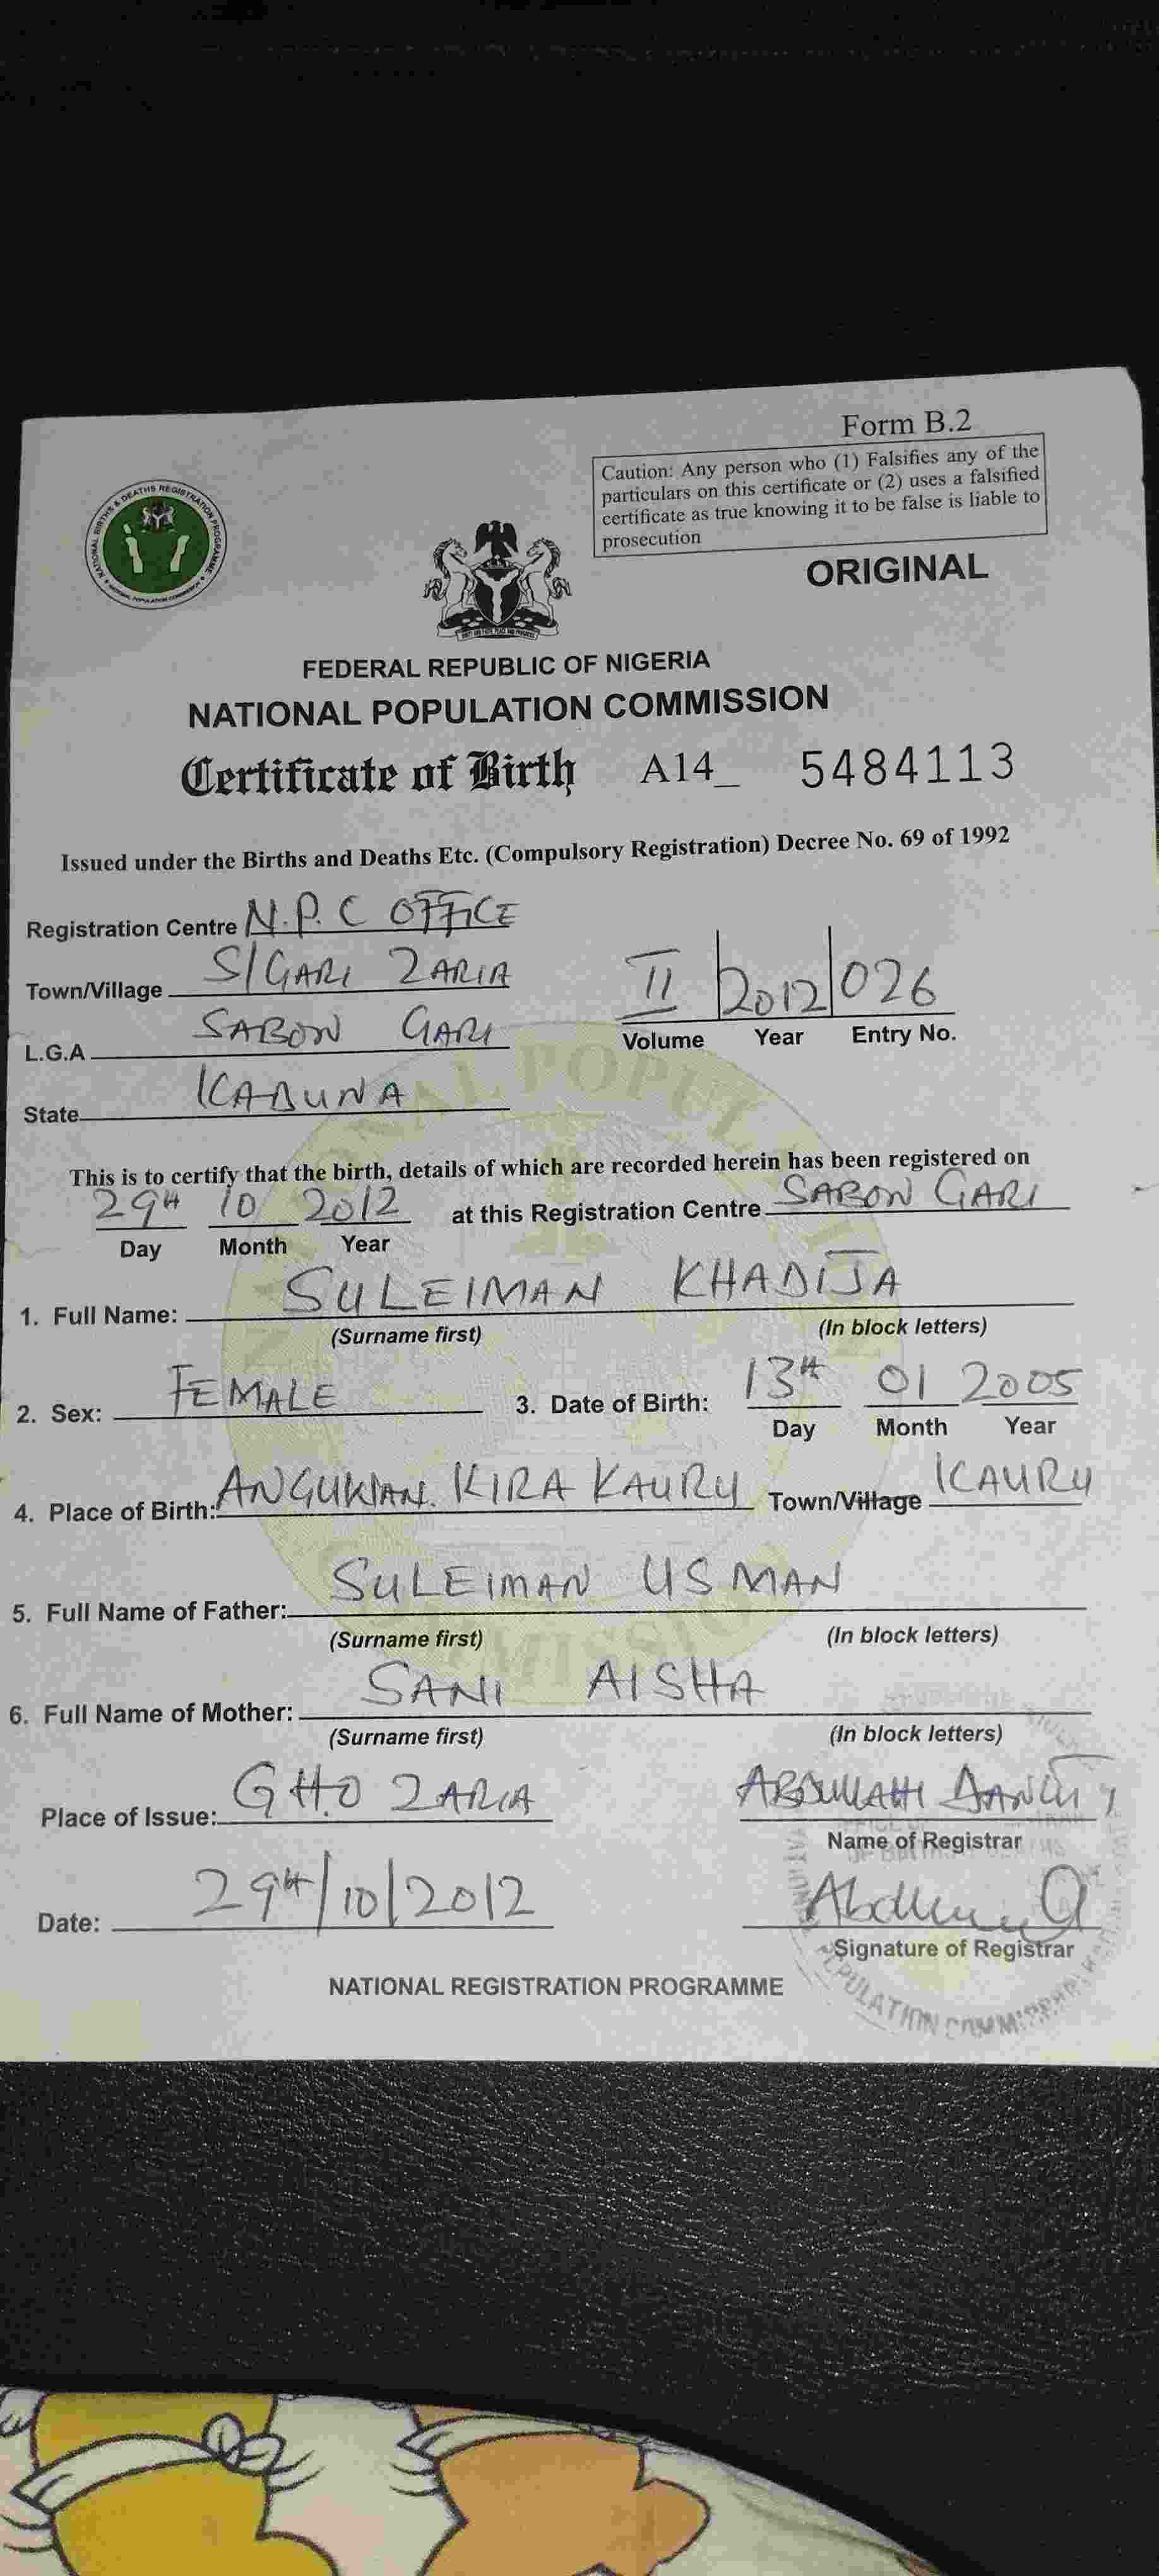 Form B.2
Caution: Any person who (1) Falsifies any of the
particulars on this certificate or (2) uses a falsified
certificate as true knowing it to be false is liable to
prosecution
NATIONAL BIRTHS & DEATHS REGISTRATION PROGRAMME
NATIONAL POPULATION COMMISSION
ORIGINAL
FEDERAL REPUBLIC OF NIGERIA
NATIONAL POPULATION COMMISSION
Certificate of Birth A14_ 5484113
Issued under the Births and Deaths Etc. (Compulsory Registration) Decree No. 69 of 1992
Registration Centre N.P.C OFFICE
Town/Village S/GARI ZARIA
II 2012 026
Volume Year Entry No.
L.G.A SABON GARI
State KADUNA
This is to certify that the birth, details of which are recorded herein has been registered on
29th 10 2012 at this Registration Centre SABON GARI
Day Month Year
1. Full Name: SULEIMAN KHADIJA
(Surname first) (In block letters)
2. Sex: FEMALE 3. Date of Birth: 13th 01 2005
Day Month Year
4. Place of Birth: ANGUWAN KIRA KAURU Town/Village KAURU
5. Full Name of Father: SULEIMAN USMAN
(Surname first) (In block letters)
6. Full Name of Mother: SANI AISHA
(Surname first) (In block letters)
Place of Issue: GHO ZARIA ABDULLAHI
Name of Registrar
Date: 29th/10/2012
Signature of Registrar
NATIONAL REGISTRATION PROGRAMME